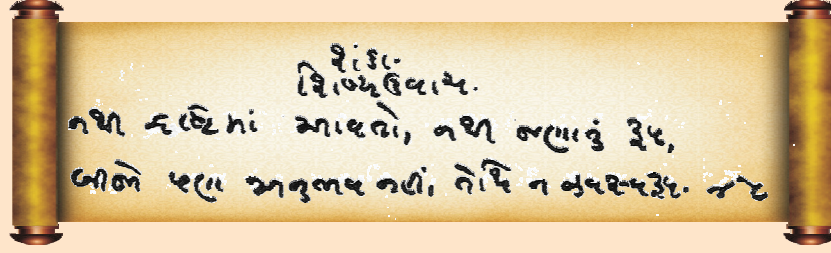 શંકા.
શિષ્યઉવાચ.
નથી દ્રષ્ટિમાં આવતો, નથી જણાતું રૂપ,
બીજો પણ અનુભવ નહીં, તેથિ ન જીવસ્વરૂપ. ૪૫